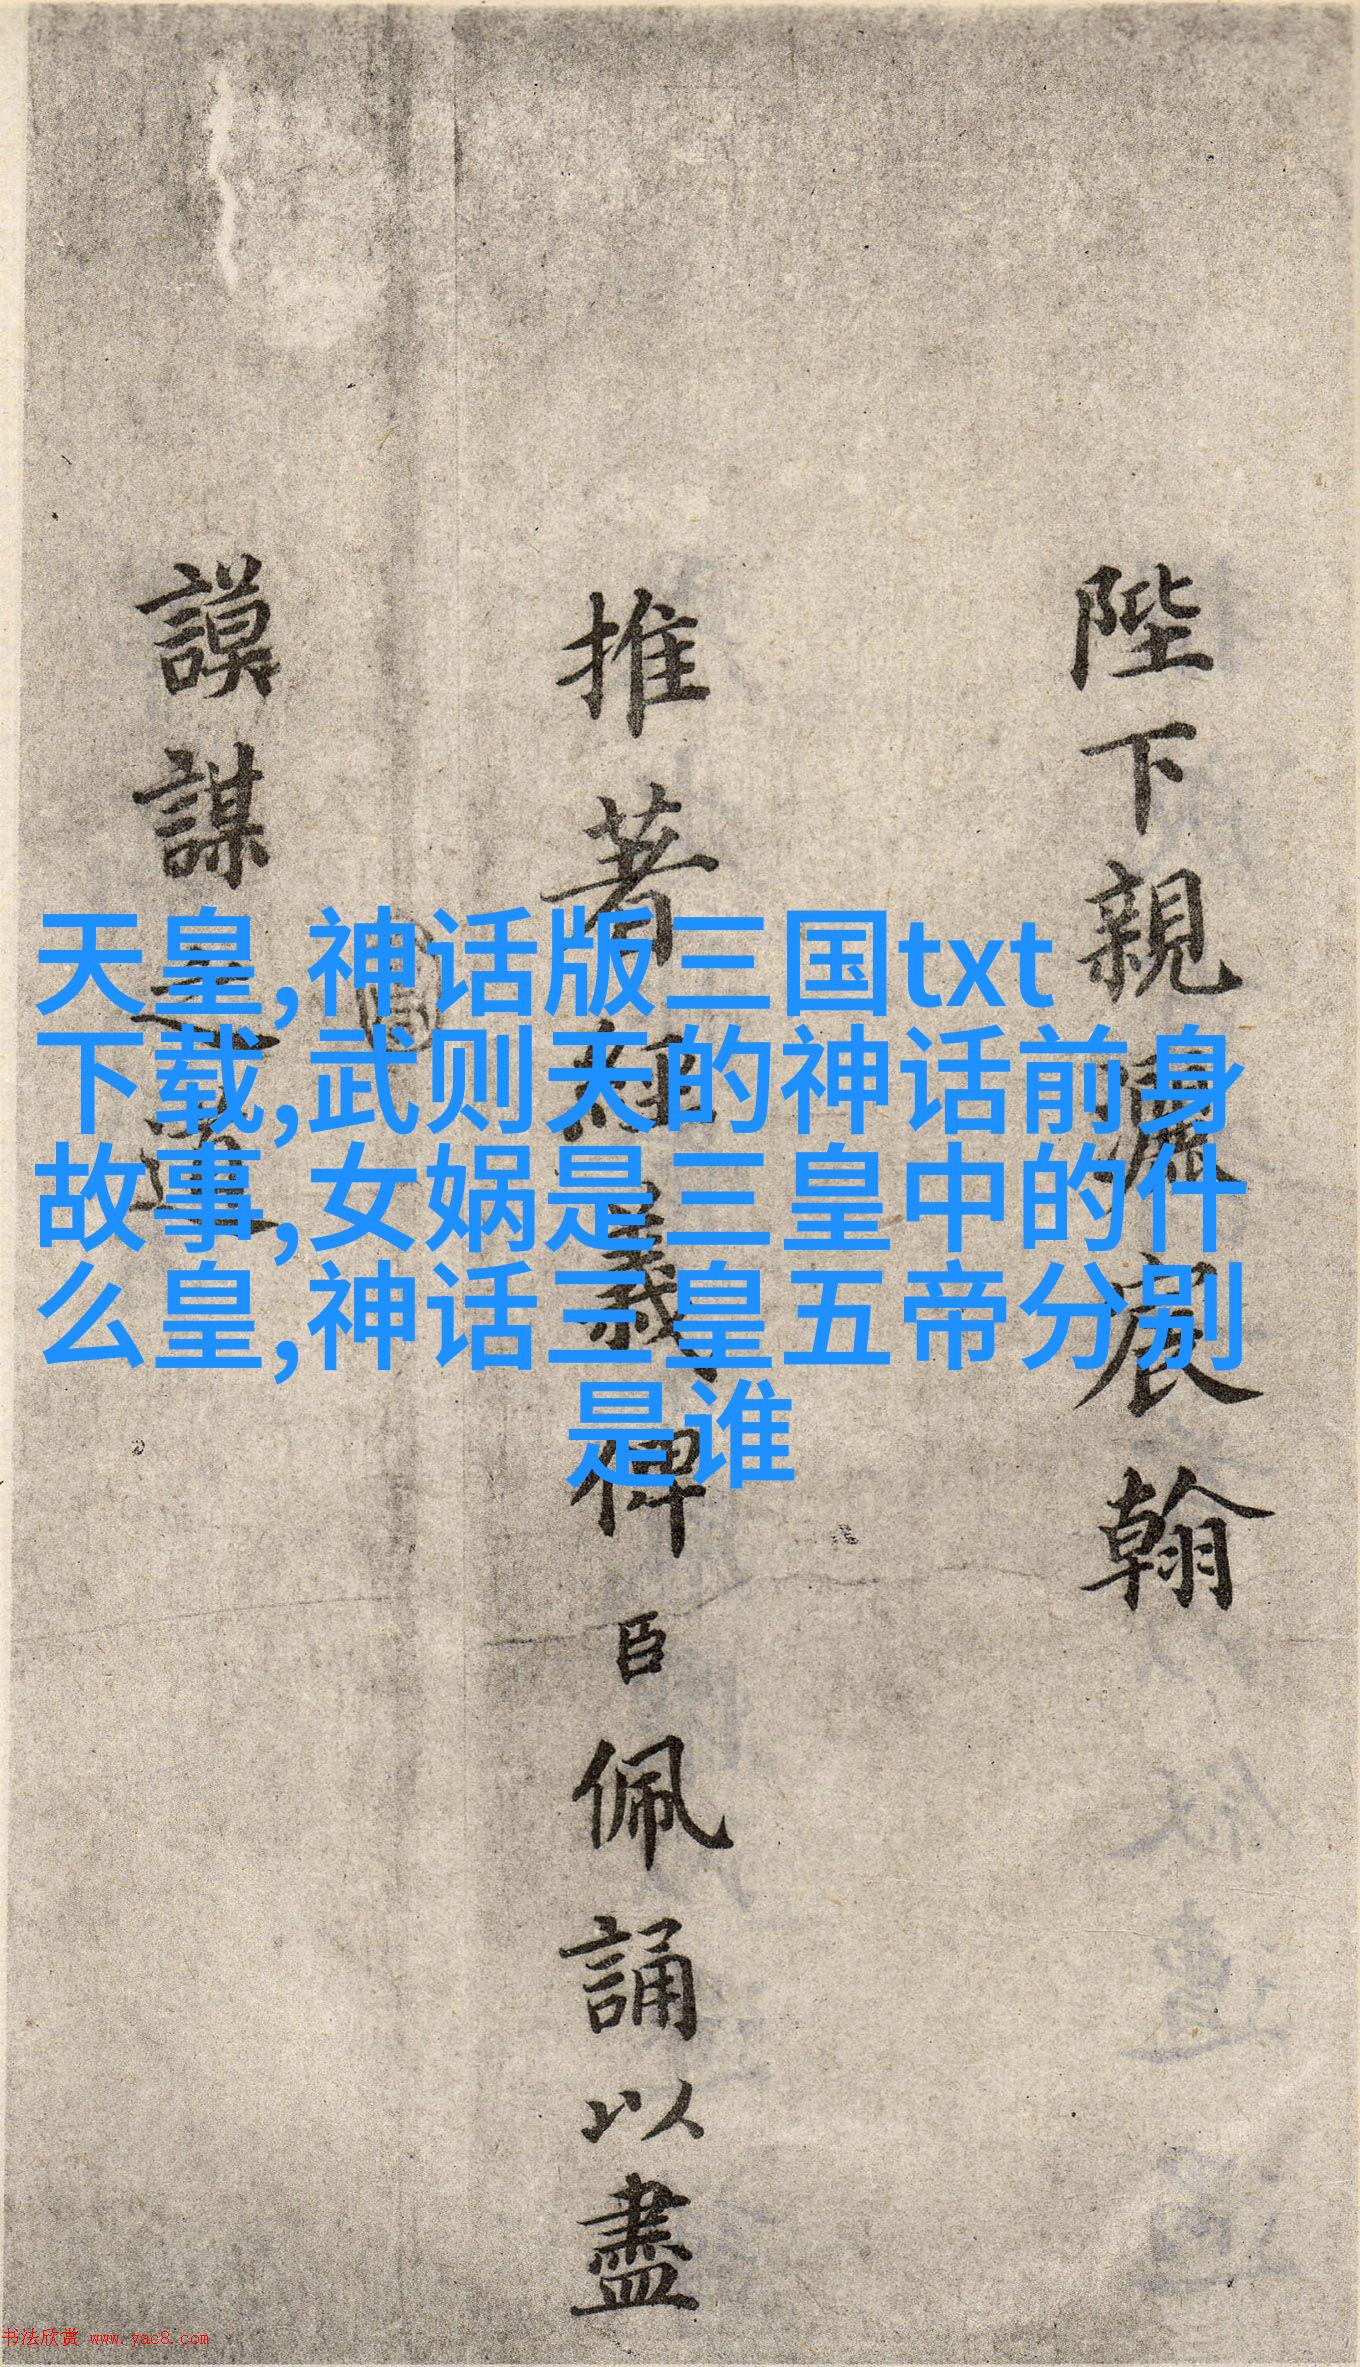 陛下親灑宸翰
推著經義俾臣佩誦以盡
謨謀之道
天皇,神话版三国txt
下载,武则天的神话前身
故事,女娲是三皇中的什
么皇,神话三皇五帝分别
是谁
书法欣赏 www.yac8.com